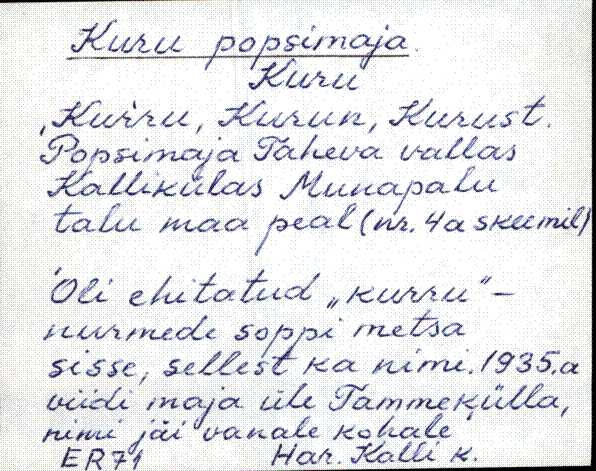 Kuru popsimaja.
Kuru
, Kuŕru, Kurun, Kurust.
Popsimaja Taheva vallas
Kallikülas Munapalu
talu maa peal (nr. 4a skeemil)
'Oli ehitatud „kurru“ –
nurmede soppi metsa
sisse, sellest ka nimi. 1935. a
viidi maja üle Tammekülla,
nimi jäi vanale kohale'
ER71 Har. Kalli k.